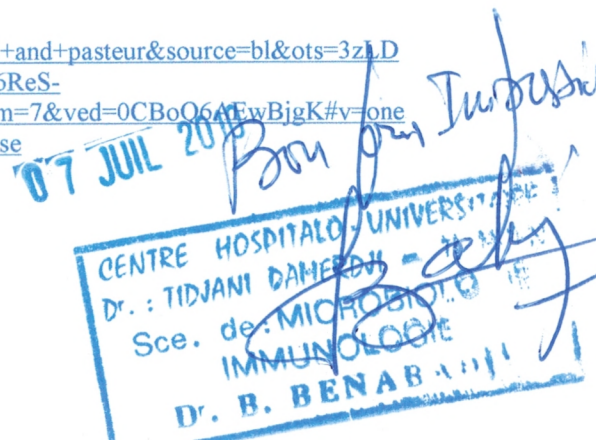 +and+pasteur&source=bl&ots=3zLD
6ReS-
m=7&ved=0CBoQ6AEwBjgK#v=one
se
07 JUIL
Bon pour
CENTRE HOSPITALO-UNIVERSITAIRE
Dr. : TIDJANI DAMERDJI -
Sce. de : MICROBIOLO
IMMUNOLOGIE
Dr. B. BENAB